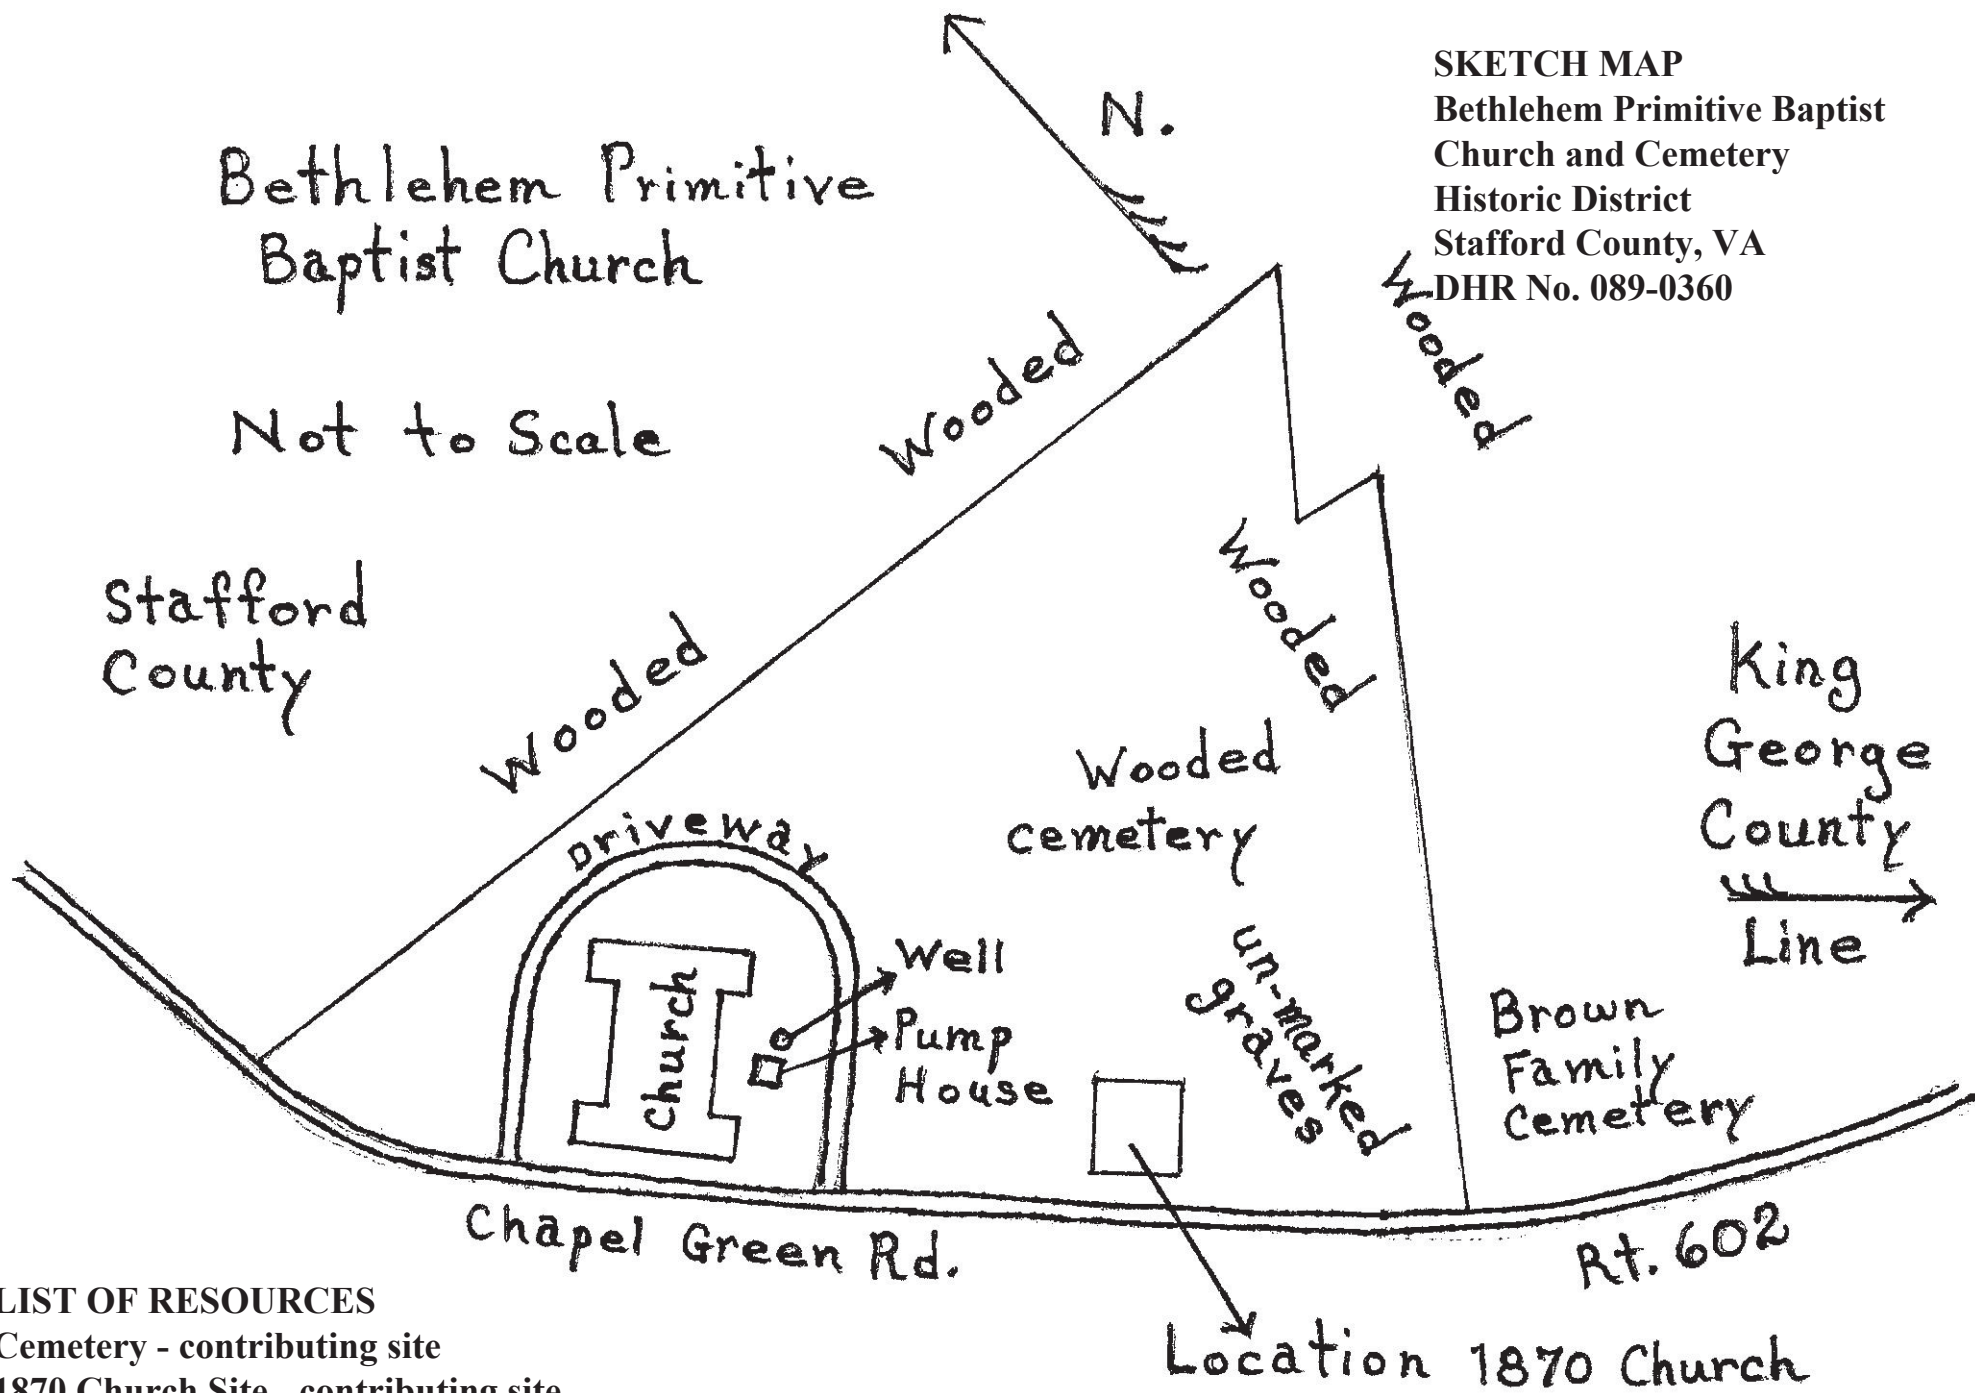 N.
SKETCH MAP
Bethlehem Primitive Baptist
Church and Cemetery
Historic District
Stafford County, VA
DHR No. 089-0360
Bethlehem Primitive
Baptist Church
Not to Scale
Stafford
County
Wooded
Wooded
Wooded
Wooded
Wooded
cemetery
King
George
County
Line
Driveway
Church
Well
Pump
House
un-marked
graves
Brown
Family
Cemetery
Chapel Green Rd.
Rt. 602
Location 1870 Church
LIST OF RESOURCES
Cemetery - contributing site
1870 Church Site - contributing site